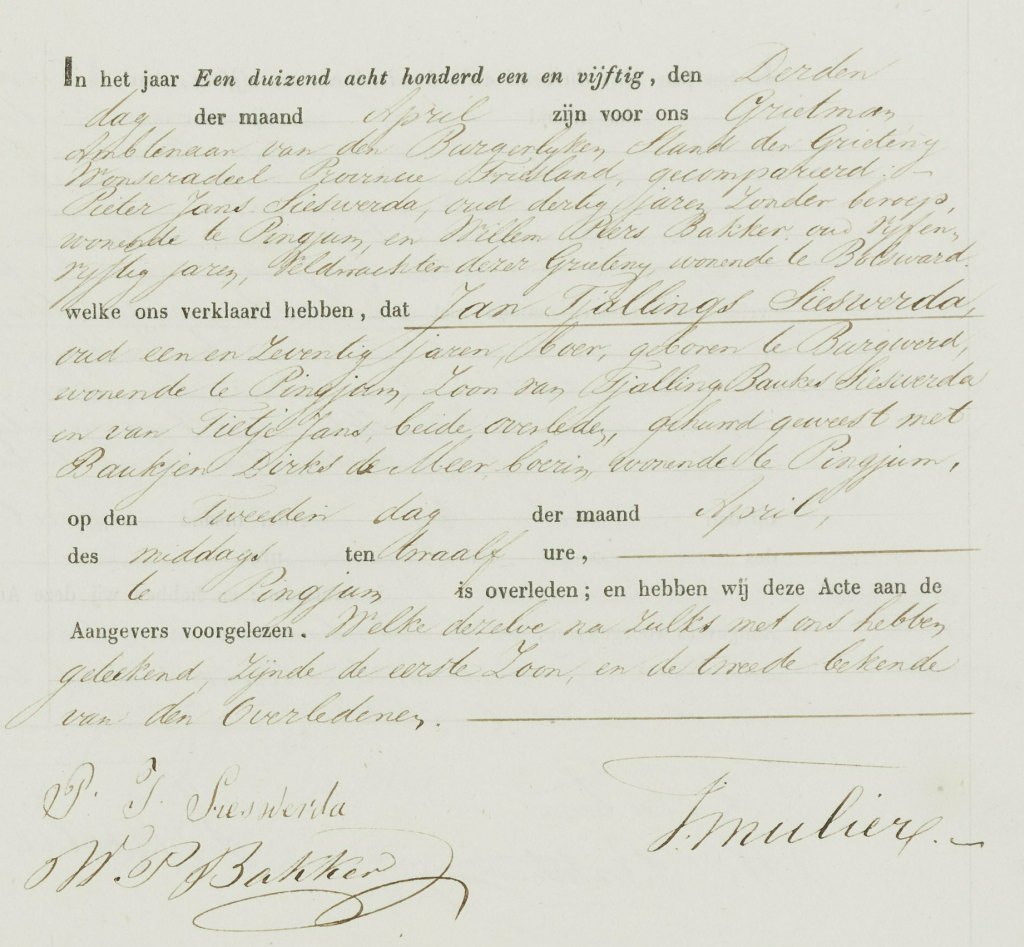 In het jaar Een duizend acht honderd een en vijftig, den Derden
dag der maand April zijn voor ons Grietman
Ambtenaar van den Burgerlyken Stand der Grieteny
Wonseradeel Provincie Friesland, gecompareerd:
Pieter Jans Sieswerda, oud dertig jaren, Zonder beroep,
wonende te Pingjum, en Willem Piers Bakker, oud vyf en
vyftig jaren, Veldwachter dezer Grieteny, wonende te Bolsward.
welke ons verklaard hebben, dat Jan Tjallings Sieswerda,
oud een en Zeventig jaren, boer, geboren te Burgwerd,
wonende te Pingjum, Zoon van Tjalling Baukes Sieswerda
en van Tietje Jans, beide overleden, gehuwd geweest met
Baukjen Dirks de Meer, boerin, wonende te Pingjum,
op den Tweeden dag der maand April,
des middags ten twaalf ure,
te Pingjum is overleden; en hebben wij deze Acte aan de
Aangevers voorgelezen. Welke dezelve na zulks met ons hebben
geteekend, zijnde de eerste Zoon, en de tweede bekende
van den Overledenen.
P. J. Sieswerda
W. P Bakker